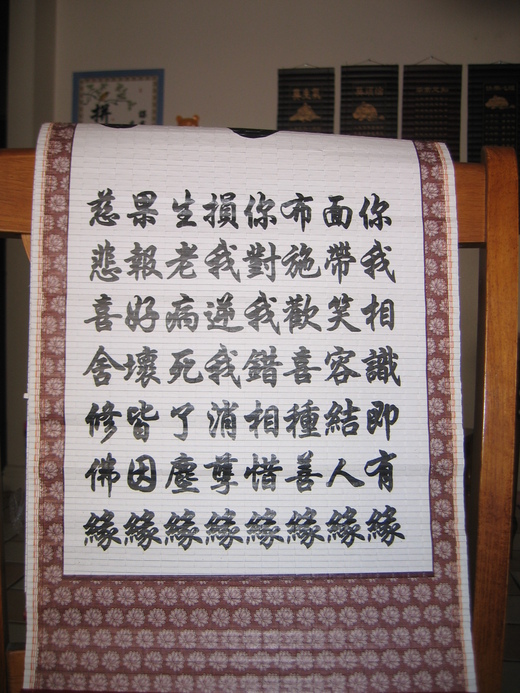 你我相識即有緣
面帶笑容結人緣
布施歡喜種善緣
你對我錯相惜緣
損我逆我消孽緣
生老病死了塵緣
果報好壞皆因緣
慈悲喜舍修佛緣
拼